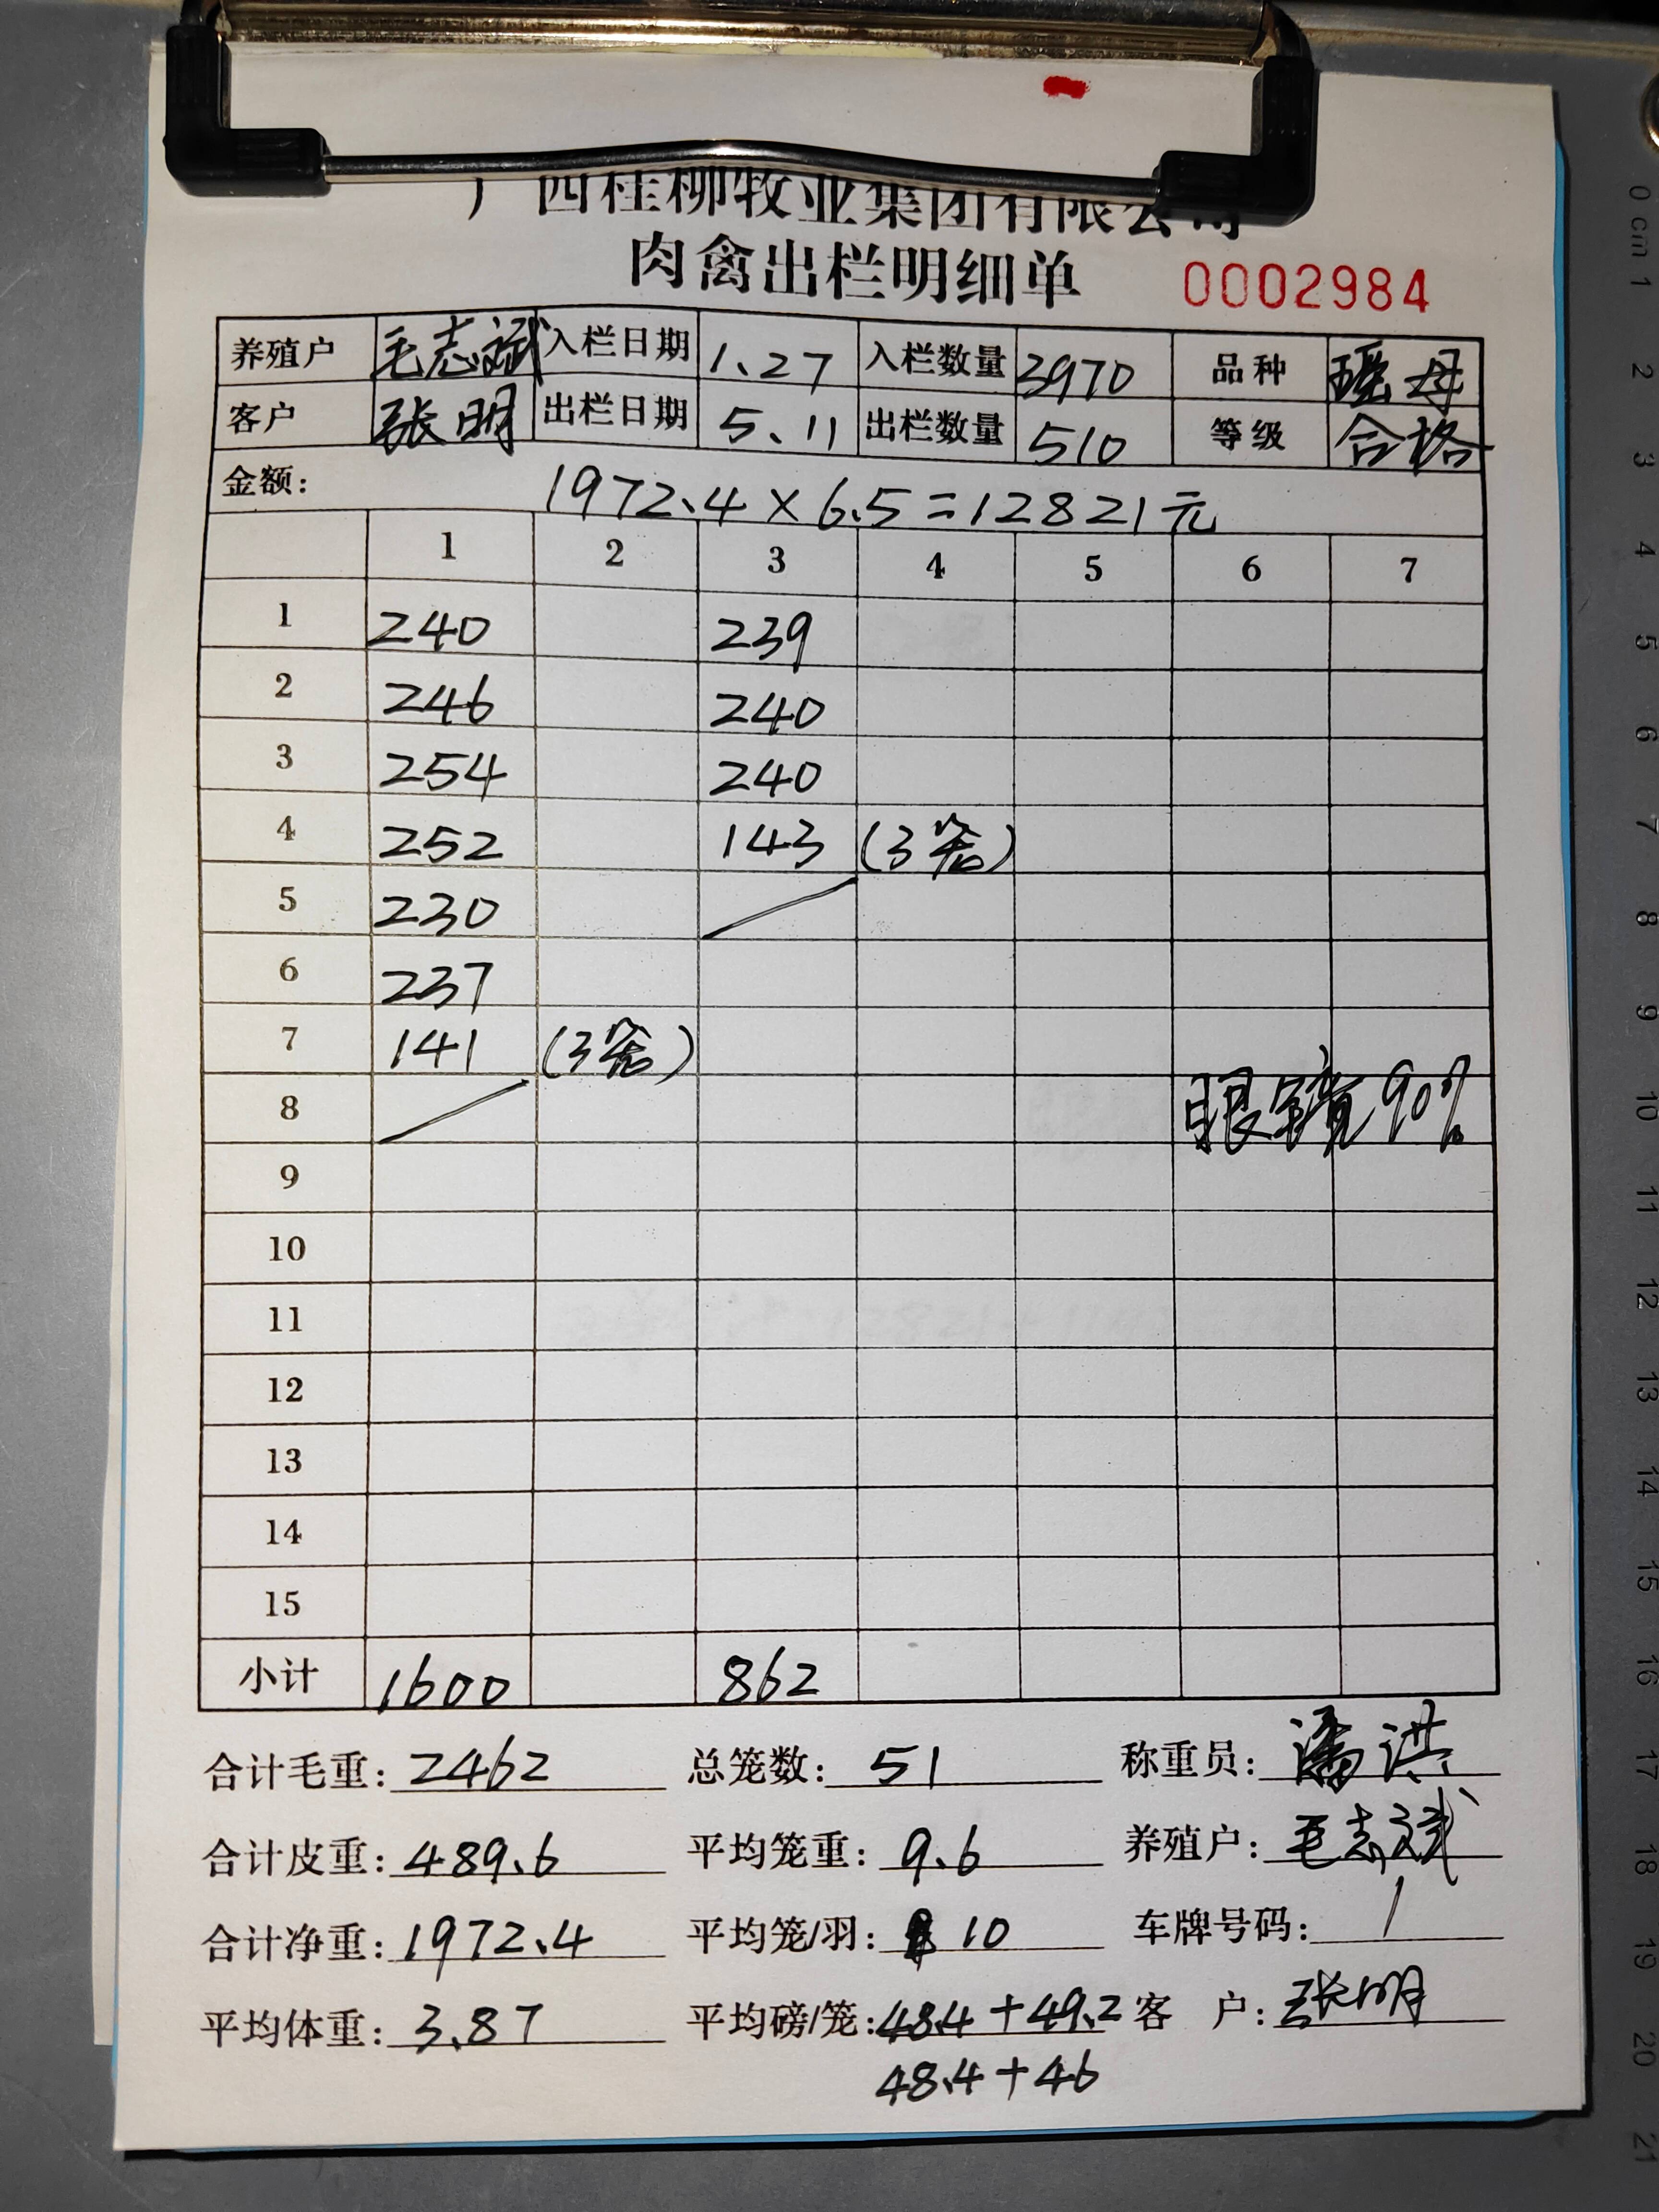 广西桂柳牧业集团有限公司
肉禽出栏明细单 0002984
养殖户 毛志斌 入栏日期 1.27 入栏数量 3970 品种 瑶母
客户 张明 出栏日期 5.11 出栏数量 510 等级 合格
金额: 1972.4×6.5=12821元
1 2 3 4 5 6 7
1 240 239
2 246 240
3 254 240
4 252 143 (3笼)
5 230
6 237
7 141 (3笼)
8 眼镜90%
9
10
11
12
13
14
15
小计 1600 862
合计毛重: 2462 总笼数: 51 称重员: 潘洪
合计皮重: 489.6 平均笼重: 9.6 养殖户: 毛志斌
合计净重: 1972.4 平均笼/羽: 10 车牌号码: 1
平均体重: 3.87 平均磅/笼: 48.4+49.2 客 户: 张明
48.4+46
0 cm 1 2 3 4 5 6 7 8 9 10 11 12 13 14 15 16 17 18 19 20 21